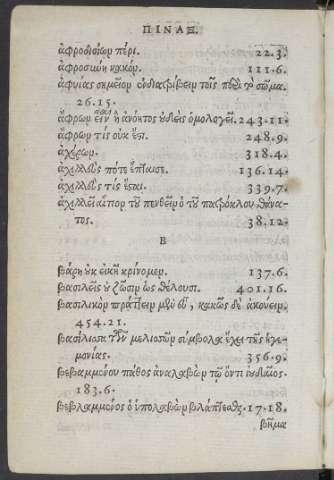 ΠΙΝΑΞ.
ἀφροδισίων πέρι. 22.3.
ἀφροσύνη κακόν. 111.6.
ἀφυίας σημεῖον ἐνδιατρίβειν τοῖς περὶ τὸ σῶμα.
26.15.
ἄφρων εἶναι ἢ ἀνόητος οὐδεὶς ὁμολογεῖ. 243.11.
ἄφρων τίς οὐκ ἔστι. 248.9.
ἄχυρον. 318.4.
ἀχιλλεὺς πότε ἔπταισε. 136.14.
ἀχιλλεὺς τίς ἔσται. 339.7.
ἀχιλλεῖ αἴτιον τοῦ πενθεῖν οὐ τοῦ πατρόκλου θάνα-
τος. 38.12.
Β
βάρη οὐκ εἰκῆ κρίνομεν. 137.6.
βασιλεῖς οὐ ζῶσιν ὡς θέλουσι. 401.16.
βασιλικὸν πράττειν μὲν εὖ, κακῶς δὲ ἀκούειν.
454.21.
βασίλισσα τῶν μελισσῶν σύμβολα ἔχει τῆς ἡγε-
μονίας. 356.9.
βεβαμμένου πάθος ἀναλαβὼν τῷ ὄντι ἰουδαῖος.
183.6.
βεβλαμμένος ὁ ὑπολαβὼν βλάπτεσθαι. 17.18.
βῆμα